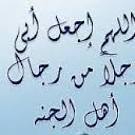 اللهم إجعل أبي
رجلاً من رجال
أهل الجنه